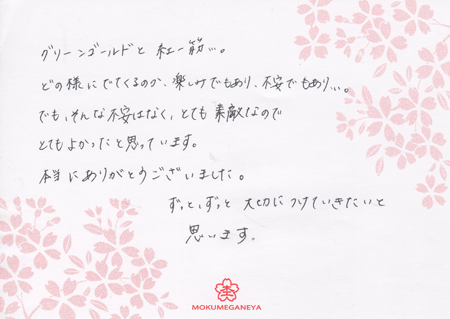 グリーンゴールドと紅一筋…。
どの様にでてくるのか、楽しみでもあり、不安でもあり…。
でも、そんな不安はなく、とても素敵なので
とてもよかったと思っています。
本当にありがとうございました。
ずっと、ずっと大切につけていきたいと
思います。
MOKUMEGANEYA